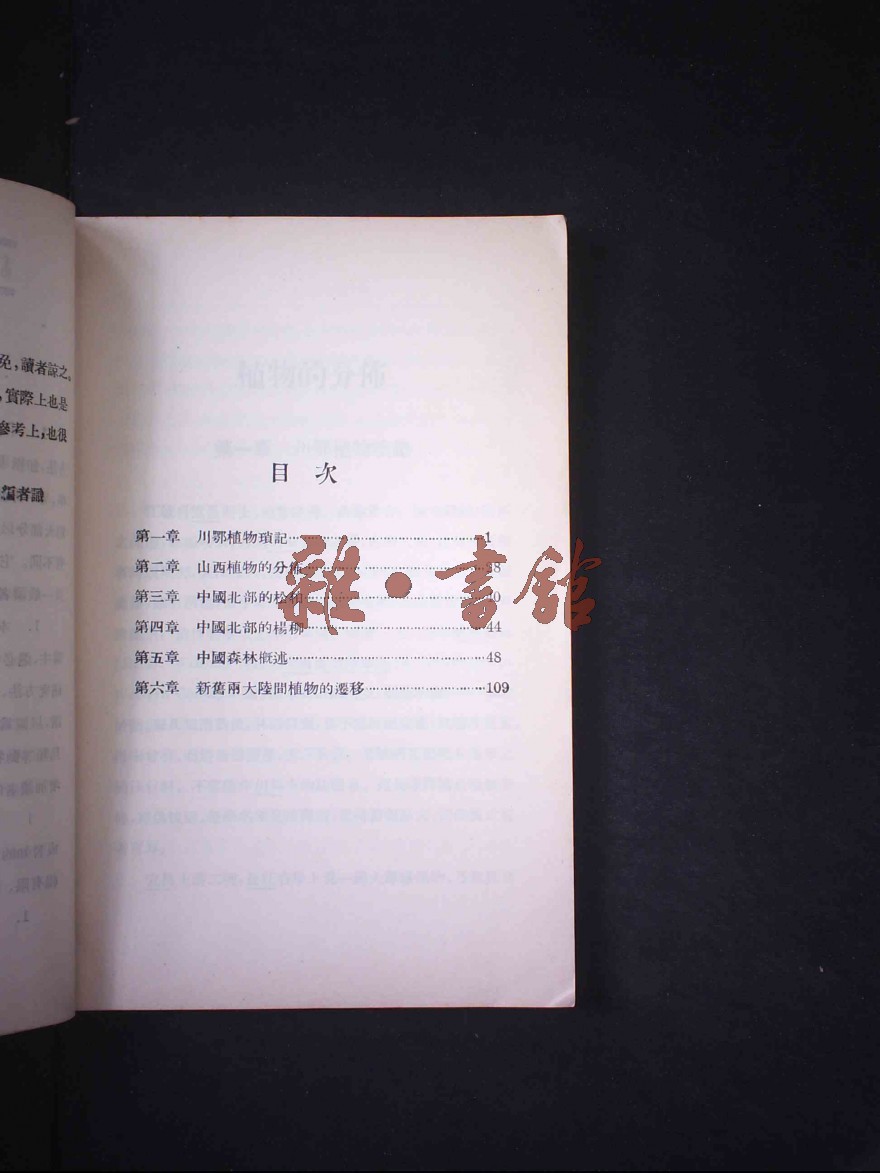 免，讀者諒之。
，實際上也是
參考上，也很
編者識
目 次
第一章 川鄂植物瑣記 1
第二章 山西植物的分佈 28
第三章 中國北部的松柏
第四章 中國北部的楊柳 44
第五章 中國森林槪述 48
第六章 新舊兩大陸間植物的遷移 109
雜·書館